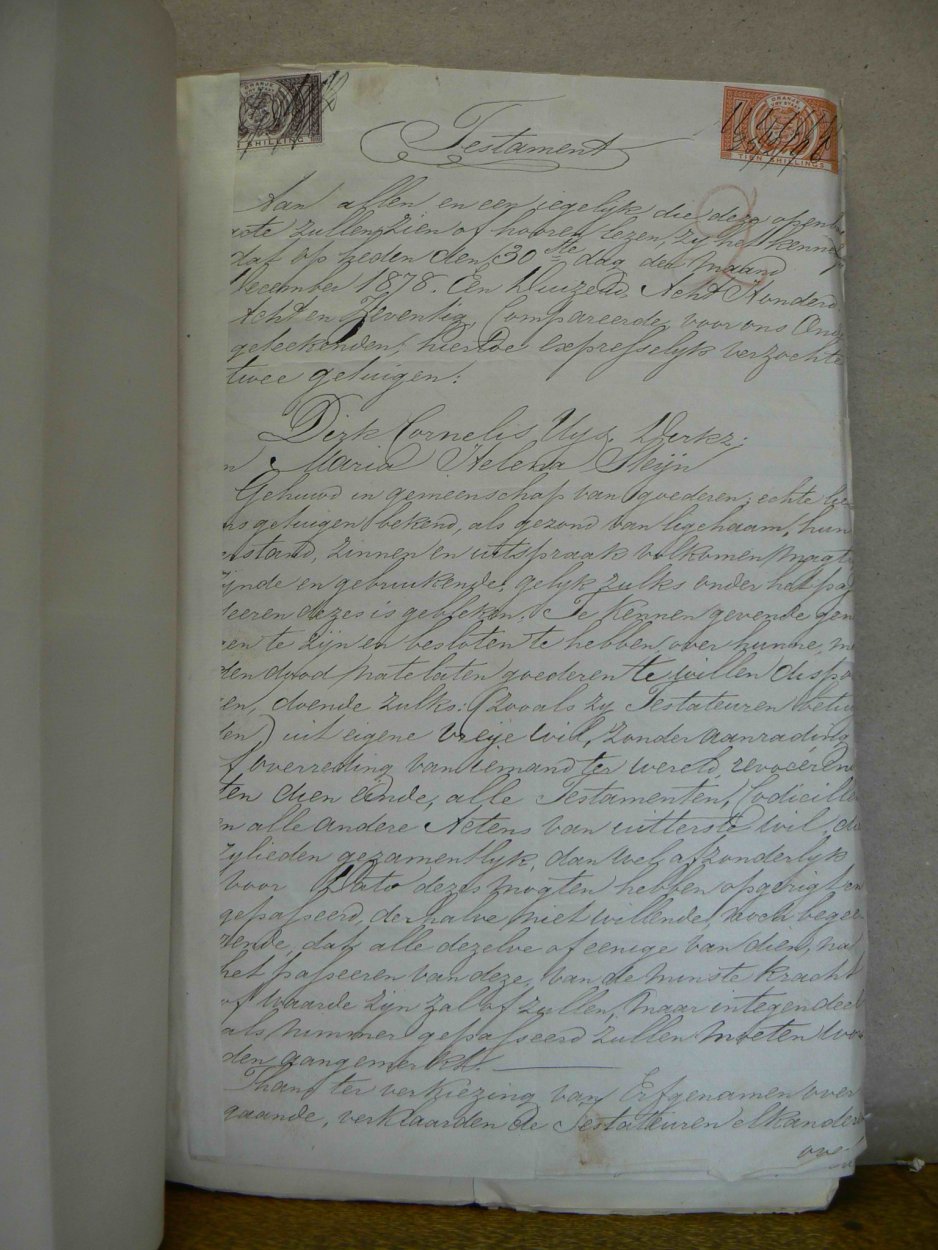 ORANJE
VRY STAAT
SHILLING
ORANJE
VRY STAAT
TIEN SHILLINGS
Testament
2
Aan allen en een iegelyk die deze openba
acte zullen zien of hooren lezen, zy het kenne
dat op heden den 30ste dag der maand
December 1878. Een Duizend, Acht Honderd
Acht en Zeventig, Compareerde voor ons Onde
geteekenden, hiertoe expresselyk verzochte
twee getuigen:
Dirk Cornelis Uys, Dirkz;
n Maria Helena Steijn
Gehuwd in gemeenschap van goederen; echte lie
ns getuigen bekend, als gezond van ligchaam, hun
erstand, zinnen en uitspraak volkomen magt
ijnde en gebruikende, gelyk zulks onder het pas
seeren dezes is gebleken. Te kennen gevende gene
gen te zijn en besloten te hebben, over hunne, me
den dood natelaten goederen te willen dispo
en, doende zulks: (zooals zy Testateuren betui
den) uit eigene vreije wil, zonder aanrading
f overreding van iemand ter wereld, revoceren
ten dien einde, alle Testamenten, Codicille
en alle andere Actens van uitterste wil, die
zylieden gezamentlyk, dan wel afzonderlyk
voor Dato dezes mogten hebben opgerigt en
gepasseerd, derhalve niet willende noch begee
rende, dat alle dezelve of eenige van dien, na
het passeeren van deze, van de minste kracht
of waarde zijn zal of zullen, maar integendeel
als nimmer gepasseerd zullen moeten wor
den aangemerkt.
Thans ter verkiezing van Erfgenamen over
gaande, verklaarden de Testateuren elkander
over